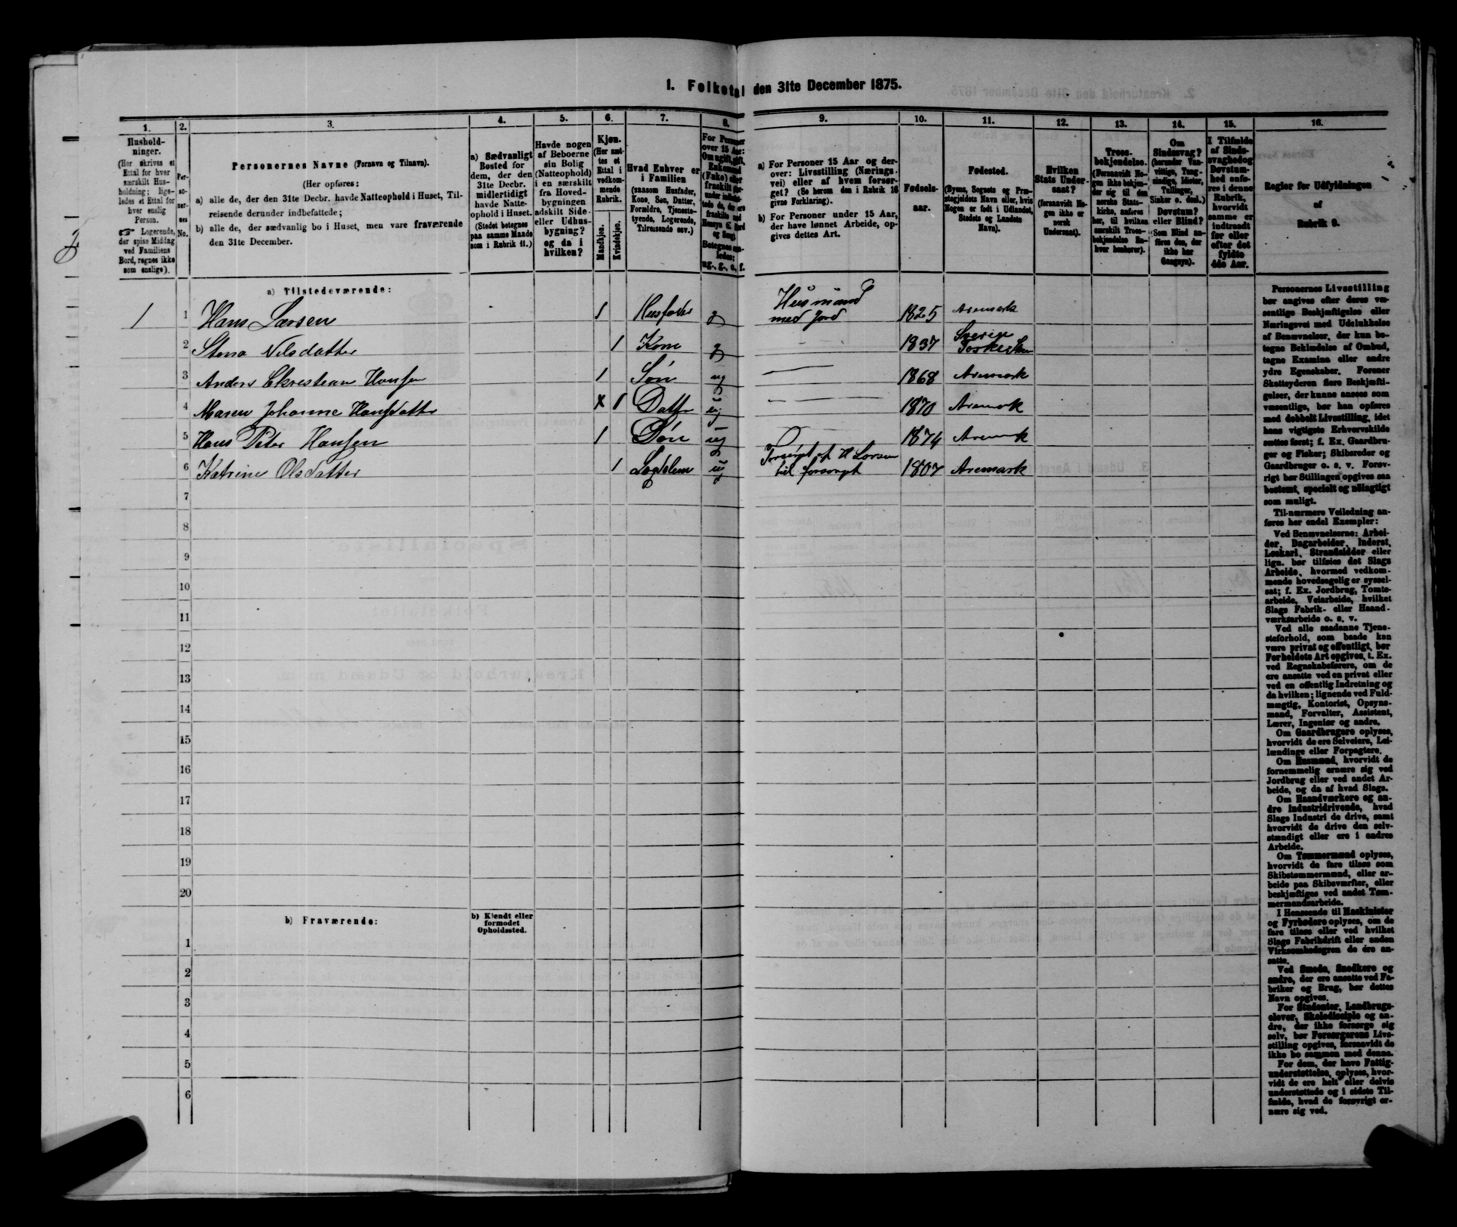 1. Folketal den 31te December 1875.
1. 2. 3. 4. 5. 6. 7. 8. 9. 10. 11. 12. 13. 14. 15. 16.
Hushold-
ninger.
(Her skrives et
Ettal for hver
særskilt Hus-
holdning; lige-
ledes et Ettal for
hver enslig
Person.
☞ Logerende,
der spise Middag
ved Familiens
Bord, regnes ikke
som enslige).
Per-
so-
ner-
nes
No.
Personernes Navne (Fornavn og Tilnavn).
(Her opføres:
a) alle de, der den 31te Decbr. havde Natteophold i Huset, Til-
reisende derunder indbefattede;
b) alle de, der sædvanlig bo i Huset, men vare fraværende
den 31te December.
a) Sædvanligt
Bosted for
dem, der den
31te Decbr.
midlertidigt
havde Natte-
ophold i Huset.
(Stedet betegnes
paa samme Maade
som i Rubrik 11.)
Havde nogen
af Beboerne
sin Bolig
(Natteophold)
i en særskilt
fra Hoved-
bygningen
adskilt Side-
eller Udhus-
bygning?
og da i
hvilken?
Kjøn.
(Her sæt-
tes et
Ettal i
vedkom-
mende
Rubrik.
Mandkjøn.
Kvindekjøn.
Hvad Enhver er
i Familien
(saasom Husfader,
Kone, Søn, Datter,
Forældre, Tjeneste-
tyende, Logerende,
Tilreisende osv.)
For Personer
over 15 Aar:
Om ugift, gift,
Enkemand
(Enke) eller
fraskilt
ug., g., e., f.
a) For Personer 15 Aar og der-
over: Livsstilling (Nærings-
vei) eller af hvem forsør-
get? (Se herom den i Rubrik 16
givne Forklaring).
b) For Personer under 15 Aar,
der have lønnet Arbeide, op-
gives dettes Art.
Fødsels-
aar.
Fødested.
(Byens, Sognets og Præ-
stegjeldets Navn eller, hvis
Nogen er født i Udlandet,
Stedets og Landets
Navn).
Hvilken
Stats Under-
saat?
(forsaavidt No-
gen ikke er
norsk
Undersaat).
Troes-
bekjendelse.
(Forsaavidt No-
gen ikke bekjen-
der sig til den
norske Stats-
kirke, anføres
til hvilken
særskilt Troes-
bekjendelse En-
hver henhører).
Om
Sindssvag?
(herunder Van-
vittige, Tung-
sindige, Idioter,
Tullinger,
Sinker o. desl.)
Døvstum?
eller Blind?
(Som Blind an-
føres den, der
ikke har
Gangsyn).
I Tilfælde
af Sinds-
svaghed og
Døvstum-
hed anfø-
res i denne
Rubrik,
hvorvidt
samme er
indtraadt
før eller
efter det
fyldte
4de Aar.
Regler for Udfyldningen
af
Rubrik 9.
a) Tilstedeværende:
1 1 Hans Larsen 1 Husfader g Husmand med Jord 1825 Aremark
2 Stena Nilsdatter 1 Kone g 1837 Sverige
3 Anders Christian Hansen 1 Søn ug 1868 Aremark
4 Maren Johanne Hansdatter x 1 Datter ug 1870 Aremark
5 Hans Peter Hansen 1 Søn ug 1874 Aremark
6 Katrine Olsdatter 1 Lægdslem ug Forsørget af H Larsen til forsørget 1807 Aremark
7
8
9
10
11
12
13
14
15
16
17
18
19
20
b) Fraværende:
b) Kjendt eller
formodet
Opholdssted.
1
2
3
4
5
6
Personernes Livsstilling
bør angives efter deres væ-
sentlige Beskjæftigelse eller
Næringsvei med Udelukkelse
af Benævnelser, der kun be-
tegne Beklædelse af Ombud,
tagne Examina eller andre
ydre Egenskaber. Forener
Skatteyderen flere Beskjæfti-
gelser, der kunne ansees som
væsentlige, bør han opføres
med dobbelt Livsstilling, idet
hans vigtigste Erhvervskilde
sættes først; f. Ex. Gaardbru-
ger og Fisker; Skibsreder og
Gaardbruger o. s. v. Forøv-
rigt bør Stillingen opgives saa
bestemt, specielt og nøiagtigt
som muligt.
Til nærmere Veiledning an-
føres her endel Exempler:
Ved Benævnelserne: Arbei-
der, Dagarbeider, Inderst,
Løskarl, Strandsidder eller
lign. bør tilføies det Slags
Arbeide, hvormed vedkom-
mende hovedsagelig er syssel-
sat; f. Ex. Jordbrug, Tomte-
arbeide, Veiarbeide, hvilket
Slags Fabrik- eller Haand-
værksarbeide o. s. v.
Ved alle saadanne Tjene-
steforhold, som baade kan
være privat og offentligt, bør
Forholdets Art opgives, f. Ex.
ved Regnskabsførere, om de
ere ansatte ved en privat eller
ved en offentlig Indretning og
da hvilken; lignende ved Fuld-
mægtig, Kontorist, Opsyns-
mand, Forvalter, Assistent,
Lærer, Ingeniør og andre.
Om Gaardbrugere oplyses,
hvorvidt de ere Selveiere, Lei-
lændinge eller Forpagtere.
Om Husmænd, hvorvidt de
fornemmelig ernære sig ved
Jordbrug eller ved andet Ar-
beide, og da af hvad Slags.
Om Haandværkere og an-
dre Industridrivende, hvad
Slags Industri de drive, samt
hvorvidt de drive den selv-
stændigt eller ere i andres
Arbeide.
Om Tømmermænd oplyses,
hvorvidt de fare tilsøs som
Skibstømmermænd, eller ar-
beide paa Skibsværfter, eller
beskjæftiges ved andet Tøm-
mermandsarbeide.
I Henseende til Maskinister
og Fyrbødere oplyses, om de
fare tilsøs eller ved hvilket
Slags Fabrikdrift eller anden
Virksomhedsgren de ere an-
satte.
Ved Smede, Snedkere og
andre, der ere ansatte ved Fa-
briker og Brug, bør dettes
Navn opgives.
For Studenter, Landbrugs-
elever, Skoledisciple og an-
dre, der ikke forsørge sig
selv, bør Forsørgerens Livs-
stilling opgives, forsaavidt de
ikke bo sammen med denne.
For dem, der have Fattig-
understøttelse, oplyses, hvor-
vidt de ere helt eller delvis
understøttede og i sidste Til-
fælde, hvad de forøvrigt er-
nære sig ved.